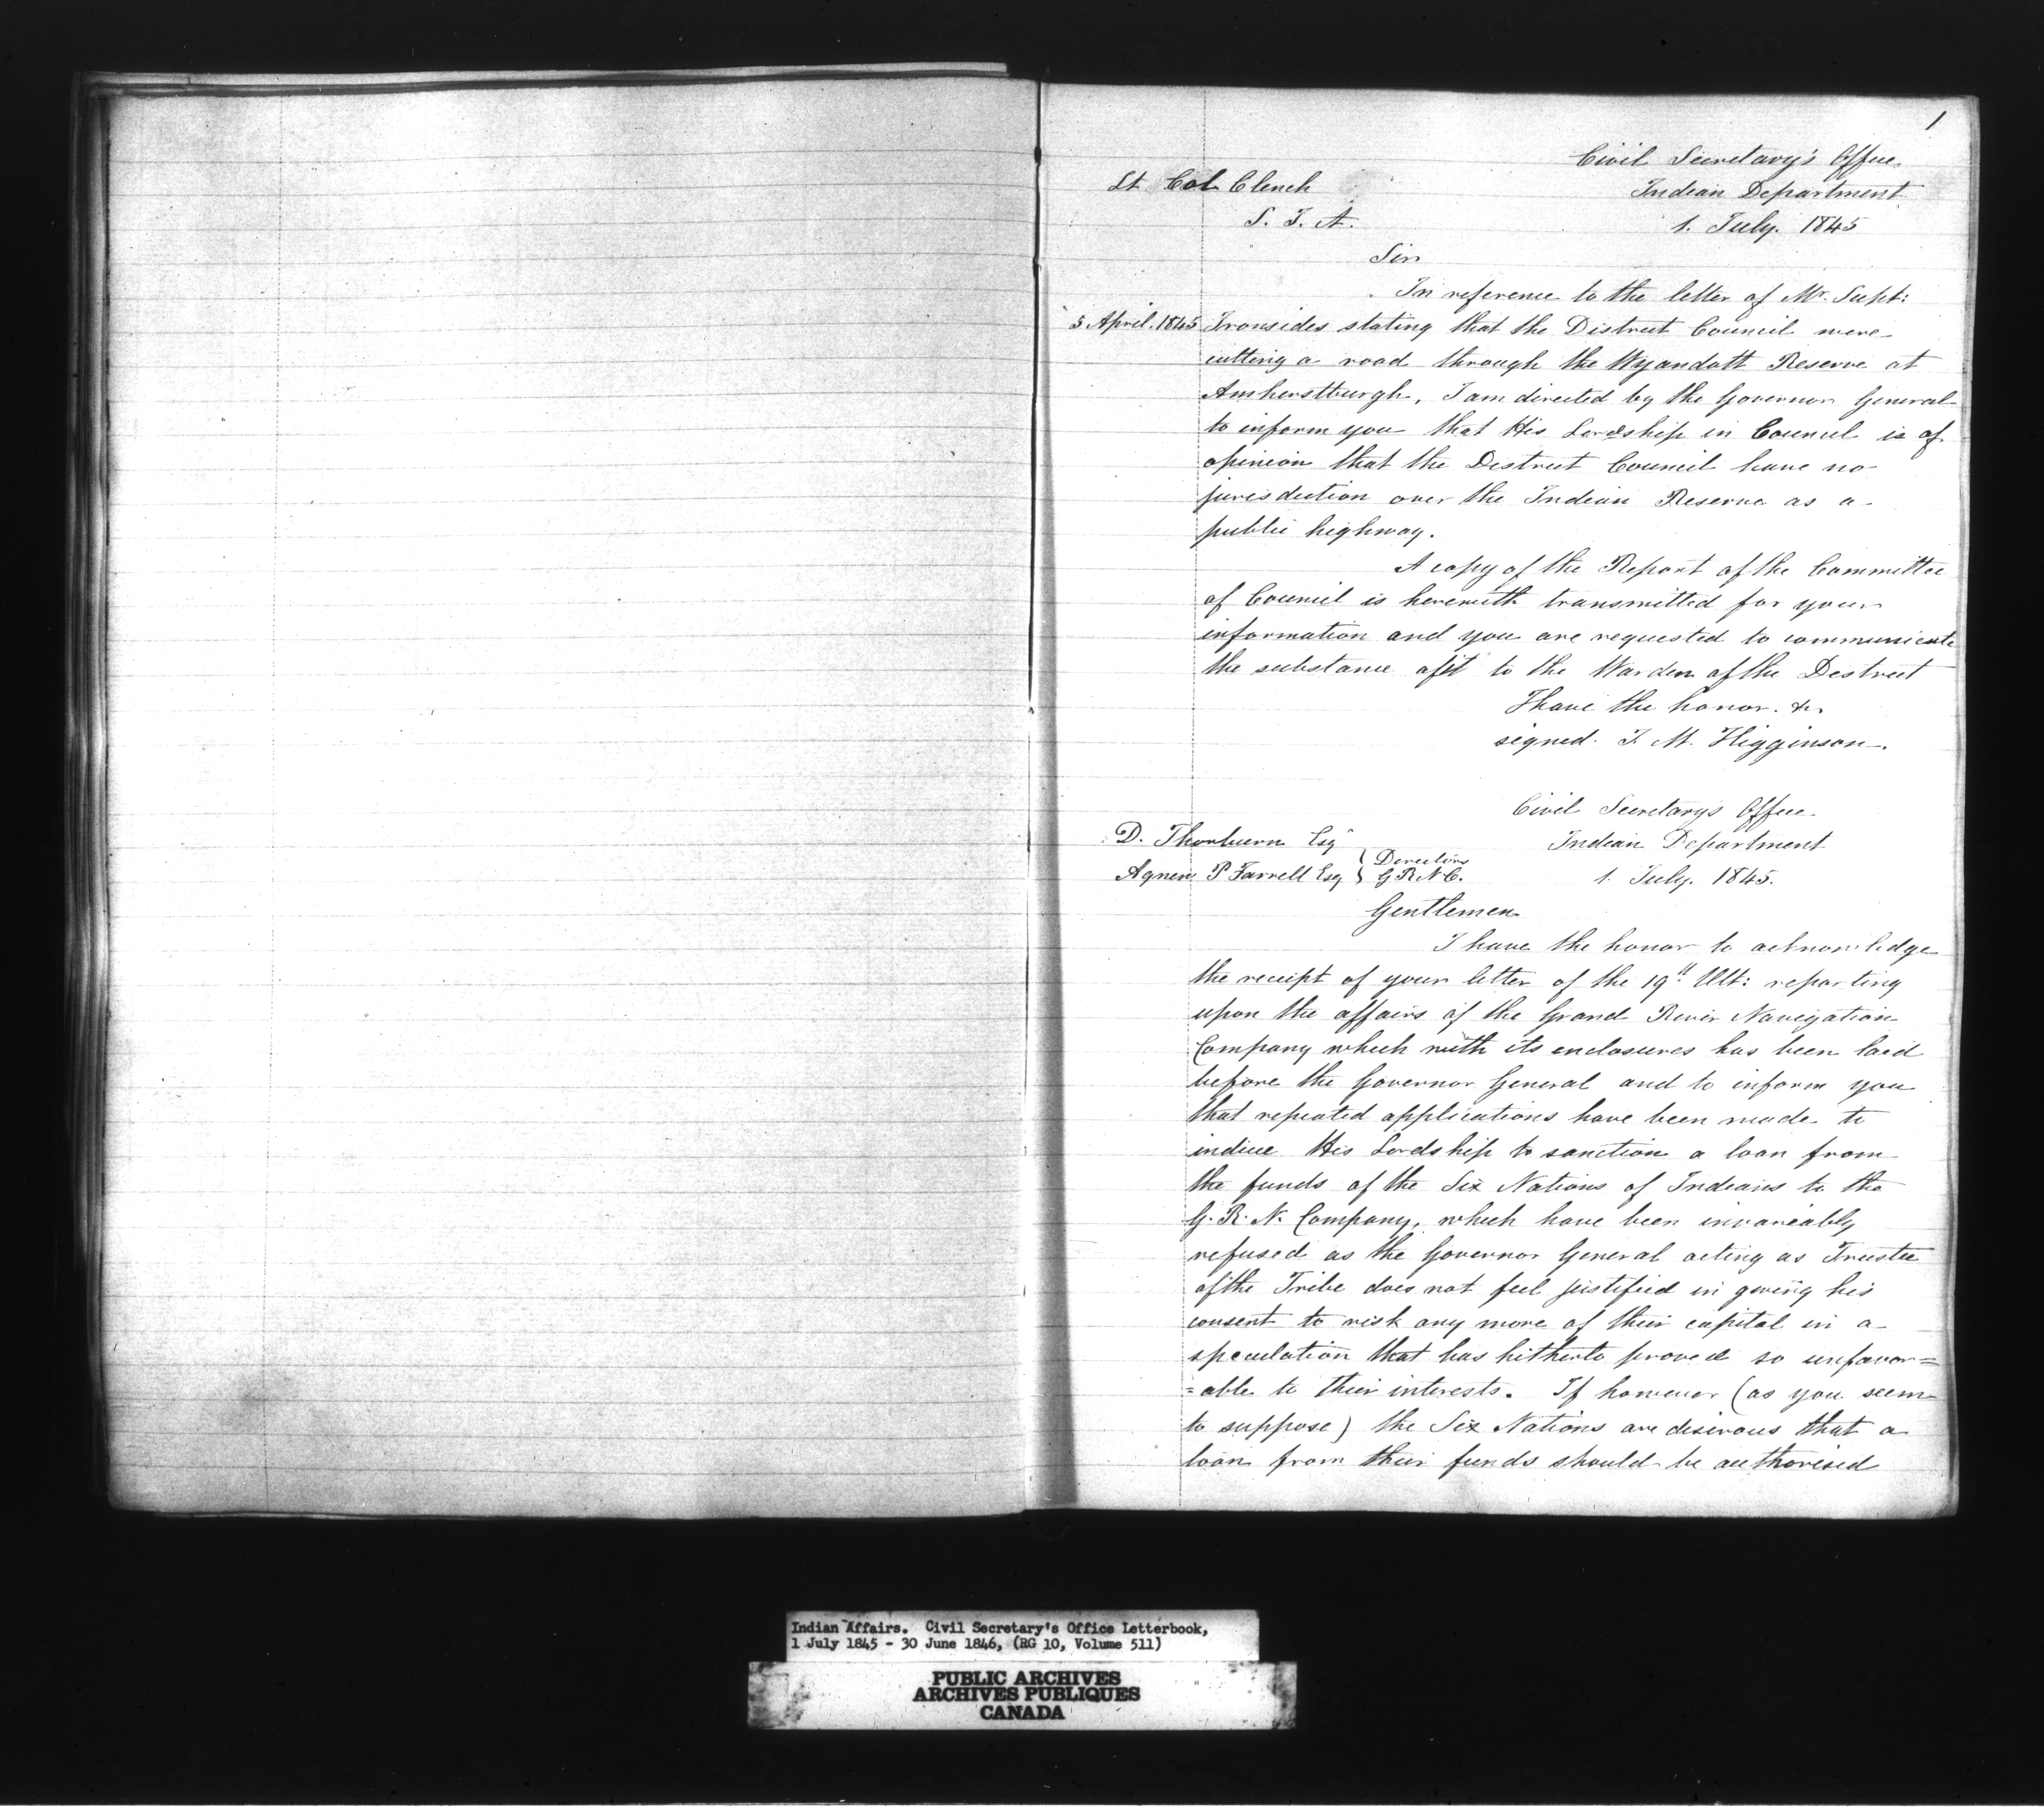 1
Civil Secretary's Office
Indian Department
1. July. 1845
Lt Col Clench
S. I. A.
Sir
In reference to the letter of Mr. Supt:
5 April. 1845 Ironsides stating that the District Council were
cutting a road through the Wyandott Reserve at
Amherstburgh, I am directed by the Governor General
to inform you that His Lordship in Council is of
opinion that the District Council have no
jurisdiction over the Indian Reserve as a
public highway.
A copy of the Report of the Committee
of Council is herewith transmitted for your
information and you are requested to communicate
the substance of it to the Warden of the District
I have the honor. &c.
signed. J. M. Higginson.
Civil Secretary's Office.
Indian Department
1. July. 1845.
D. Thorburn Esq
Agnew P Farrell Esq } Directors G R N C.
Gentlemen
I have the honor to acknowledge
the receipt of your letter of the 19th Ult: reporting
upon the affairs of the Grand River Navigation
Company which with its enclosures has been laid
before the Governor General and to inform you
that repeated applications have been made to
induce His Lordship to sanction a loan from
the funds of the Six Nations of Indians to the
G. R. N. Company, which have been invariably
refused as the Governor General acting as Trustee
of the Tribe does not feel justified in giving his
consent to risk any more of their capital in a
speculation that has hitherto proved so unfavor=
=able to their interests. If however (as you seem
to suppose) the Six Nations are desirous that a
loan from their funds should be authorised
Indian Affairs. Civil Secretary's Office Letterbook,
1 July 1845 - 30 June 1846, (RG 10, Volume 511)
PUBLIC ARCHIVES
ARCHIVES PUBLIQUES
CANADA